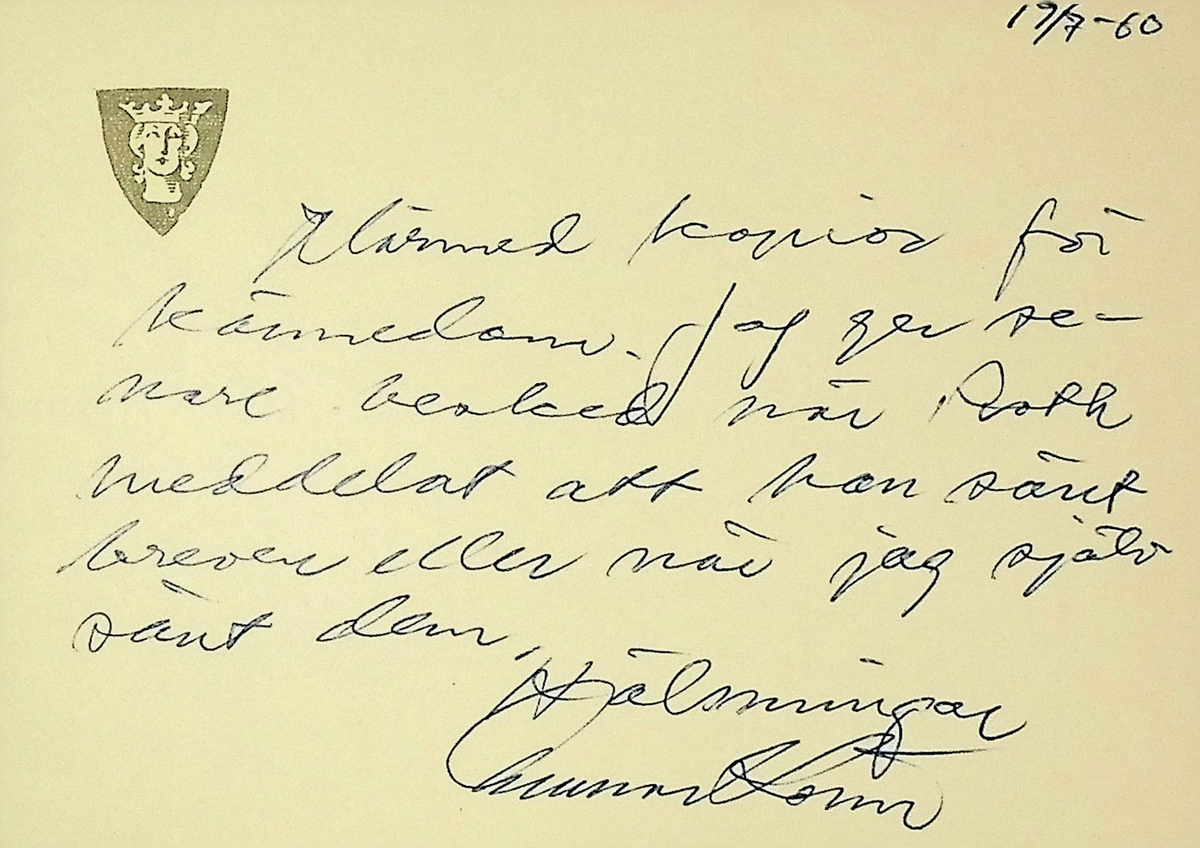 19/7-60
Härmed kopior för
kännedom. Jag ger se-
nare besked när Roth
meddelat att han sänt
breven eller när jag själv
sänt dem.
Hälsningar
Gunnar